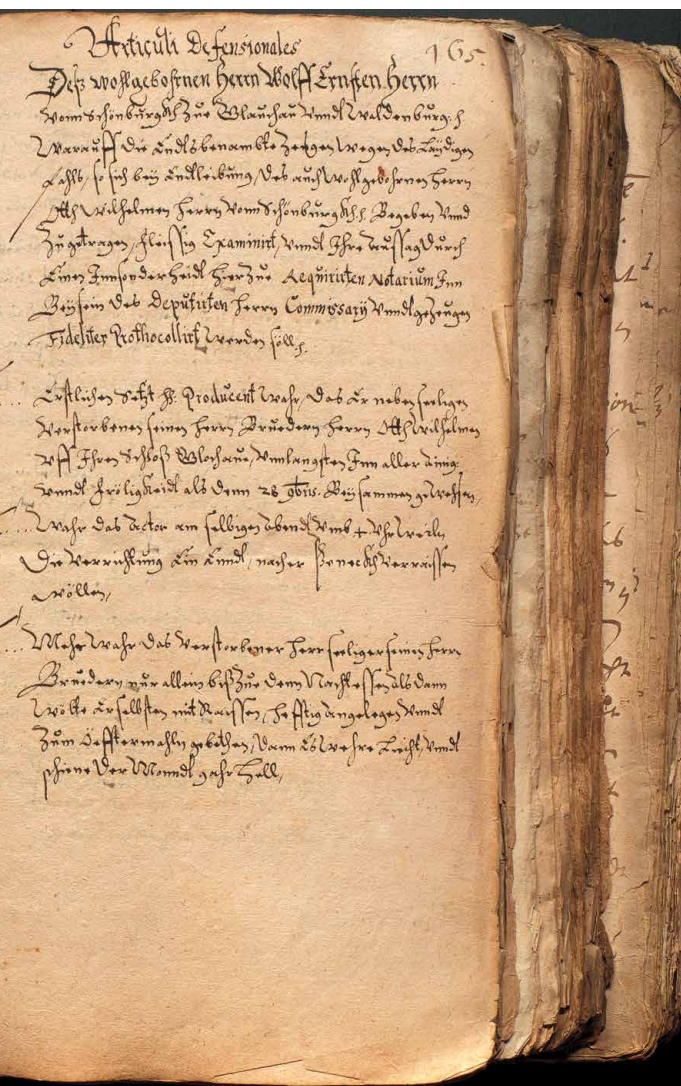 Articuli Defensionales
165.
Deß wohlgebohrnen Herrn Wolff Ernsten Herrn
vonn Schönburgkh Zue Glauchau Vnndt Waldenburg.
Warauff die Endtsbenambte Zeugen wegen des Laydigen
Fahls, so sich bey Endtleibung, des auch Wohlgebohrnen Herrn
Otth Wilhelmen Herrn vonn Schönburgkh. Begeben Vnnd
Zugetragen, fleissig Examinirt, Vnndt Ihre Aussag durch
Einen Innsonderheidt hierzue Requirirten Notarium Inn
Beysein des Deputirten Herrn Commissarij Vnndt gezeugen
Fideliter Prothocollirt Werden söll.
Erstlichen Setzt H: Producent Wahr, das Er neben seeligen
Verstorbenen seinen Herrn Bruedern Herrn Otth Wilhelmen
Vff Ihren Schloß Glochaue, Vnnlangsten Inn aller ainig
Vnndt fröligKeidt als denn 28 9bris. Beysammen gewesen,
Wahr das Actor am selbigen Abendt Vmb 4 Vhr Weiln
Die Verrichtung Ein Enndt, nacher Verraissen
wöllen,
Mehr Wahr das Verstorbener Herr seeliger seinen Herrn
Bruedern nur allein biß Zue denn Nachtessen als dann
Wölte Er selbsten mit Raissen, hefftig angelegen Vnndt
Zum Öefftermahln gebethen, dann Es Wehre Leicht, Vnndt
schiene der Monndt gahr hell,